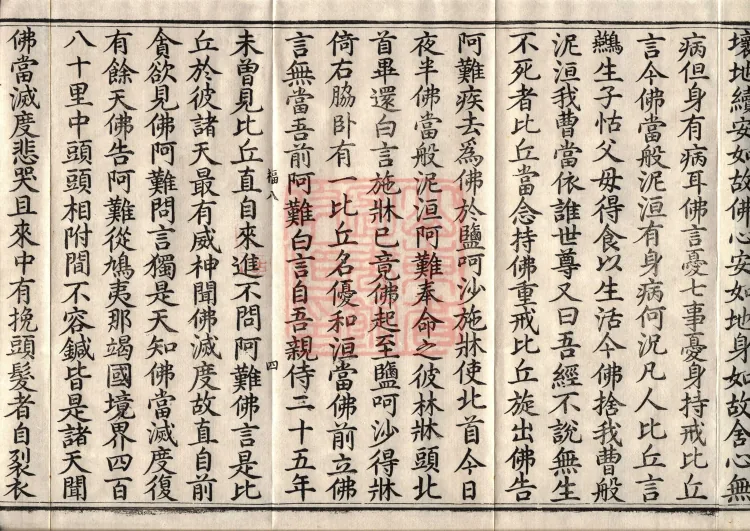 壞地續安如故佛心安如地身如故舍心無
病但身有病耳佛言憂七事憂身持戒比丘
言今佛當般泥洹有身病何況凡人比丘言
鷰生子怙父毋得食以生活今佛捨我曹般
泥洹我曹當依誰世尊又曰吾經不說無生
不死者比丘當念持佛重戒比丘旋出佛告
阿難疾去為佛於鹽呵沙施牀使北首今日
夜半佛當般泥洹阿難奉命之彼林牀頭北
首畢還白言施牀已竟佛起至鹽呵沙得牀
倚右脇卧有一比丘名優和洹當佛前立佛
言無當吾前阿難白言自吾親侍二十五年
福八
四
未曾見比丘直自來進不問阿難佛言是比
丘於彼諸天最有威神聞佛滅度故直自前
貪欲見佛阿難問言獨是天知佛當滅度復
有餘天佛告阿難從鳩夷那竭國境界四百
八十里中頭頭相附間不容鍼皆是諸天聞
佛當滅度悲哭且來中有挽頭髮者自裂衣